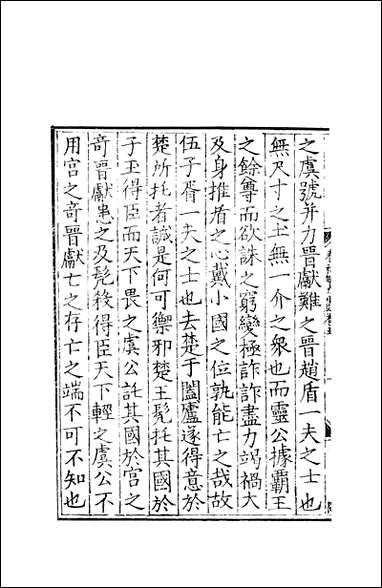 之虞號并力晋獻難之晋趙盾一夫之士也
無尺寸之土無一介之衆也而靈公據霸王
之餘尊而欲誅之窮變極詐詐盡力竭禍大
及身推盾之心載小國之位孰能亡之哉故
伍子胥一夫之士也去楚于闔廬遂得意於
楚所托者誠是何可禦邪楚王髠托其國於
子玉得臣而天下畏之虞公託其國於宮之
奇晋獻患之及髠殺得臣天下輕之虞公不
用宮之奇晋獻亡之存亡之端不可不知也